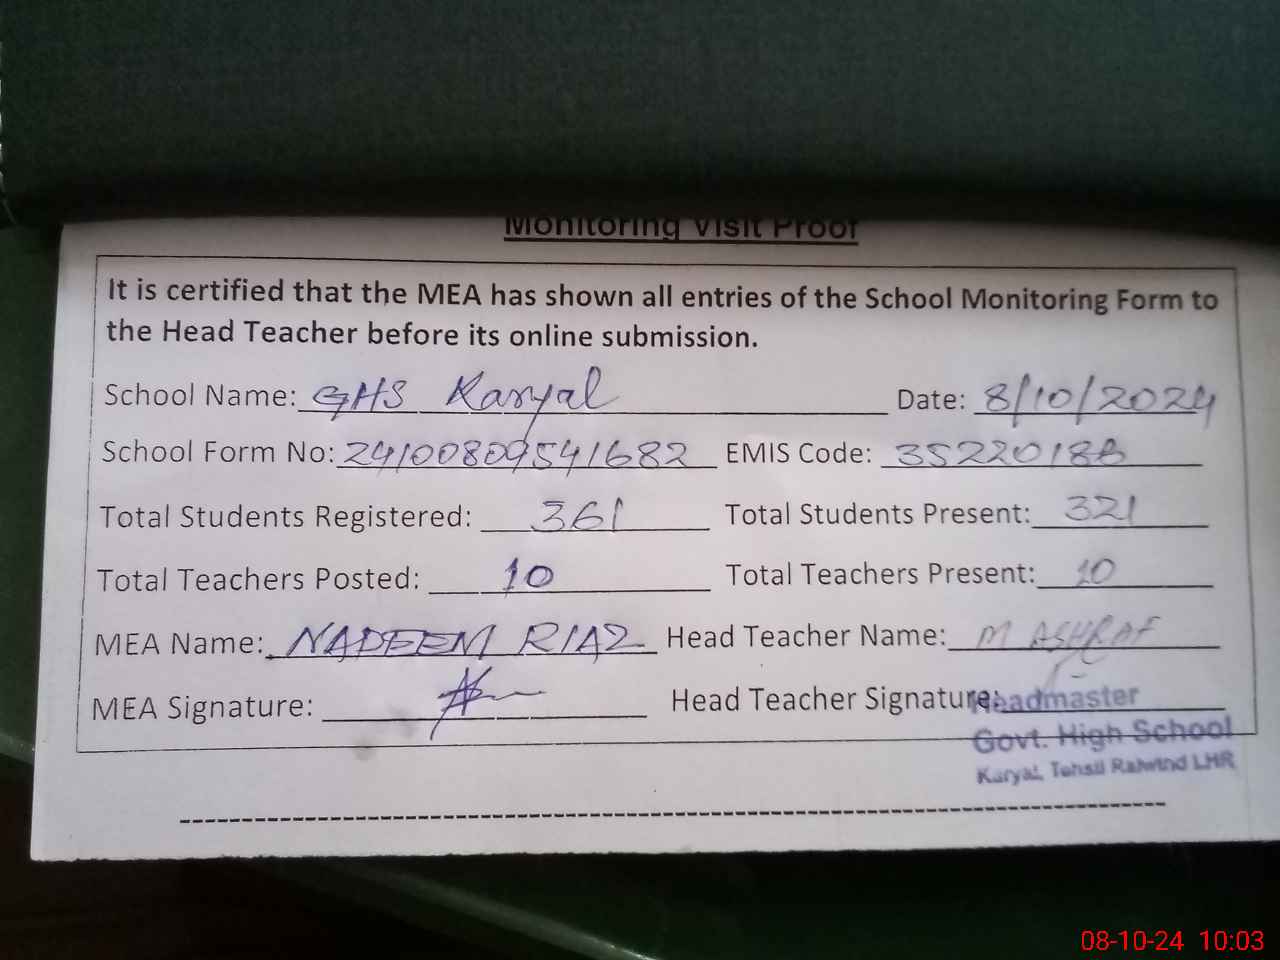 Monitoring Visit Proof
It is certified that the MEA has shown all entries of the School Monitoring Form to
the Head Teacher before its online submission.
School Name: GHS Karyal Date: 8/10/2024
School Form No: 24100809541682 EMIS Code: 35220188
Total Students Registered: 361 Total Students Present: 321
Total Teachers Posted: 10 Total Teachers Present: 10
MEA Name: NADEEM RIAZ Head Teacher Name: M ASHRAF
MEA Signature: Head Teacher Signature:
Headmaster
Govt. High School
Karyal, Tehsil Raiwind LHR
08-10-24 10:03